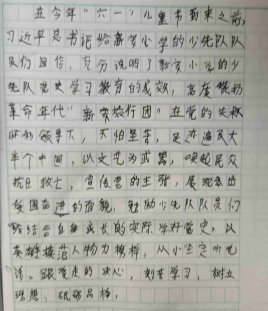 在今年"六一"儿童节到来之前,
习近平总书记给新安小学的少先队队
员们回信,充分说明了新安小学的少
先队党史学习教育的成效,高度赞扬
革命年代"新安旅行团"在党的关怀
不怕艰苦,足迹遍及大
半个中国,以文艺为武器,唤起民众
抗日救亡,宣传党的主张,展现出
爱国奋进的面貌,勉励少先队队员们
结合自身成长的实际学好党史,以
英雄模范人物为榜样,从小坚定听党
话、跟党走的决心,刻苦学习,树立
理想,砥砺品格,